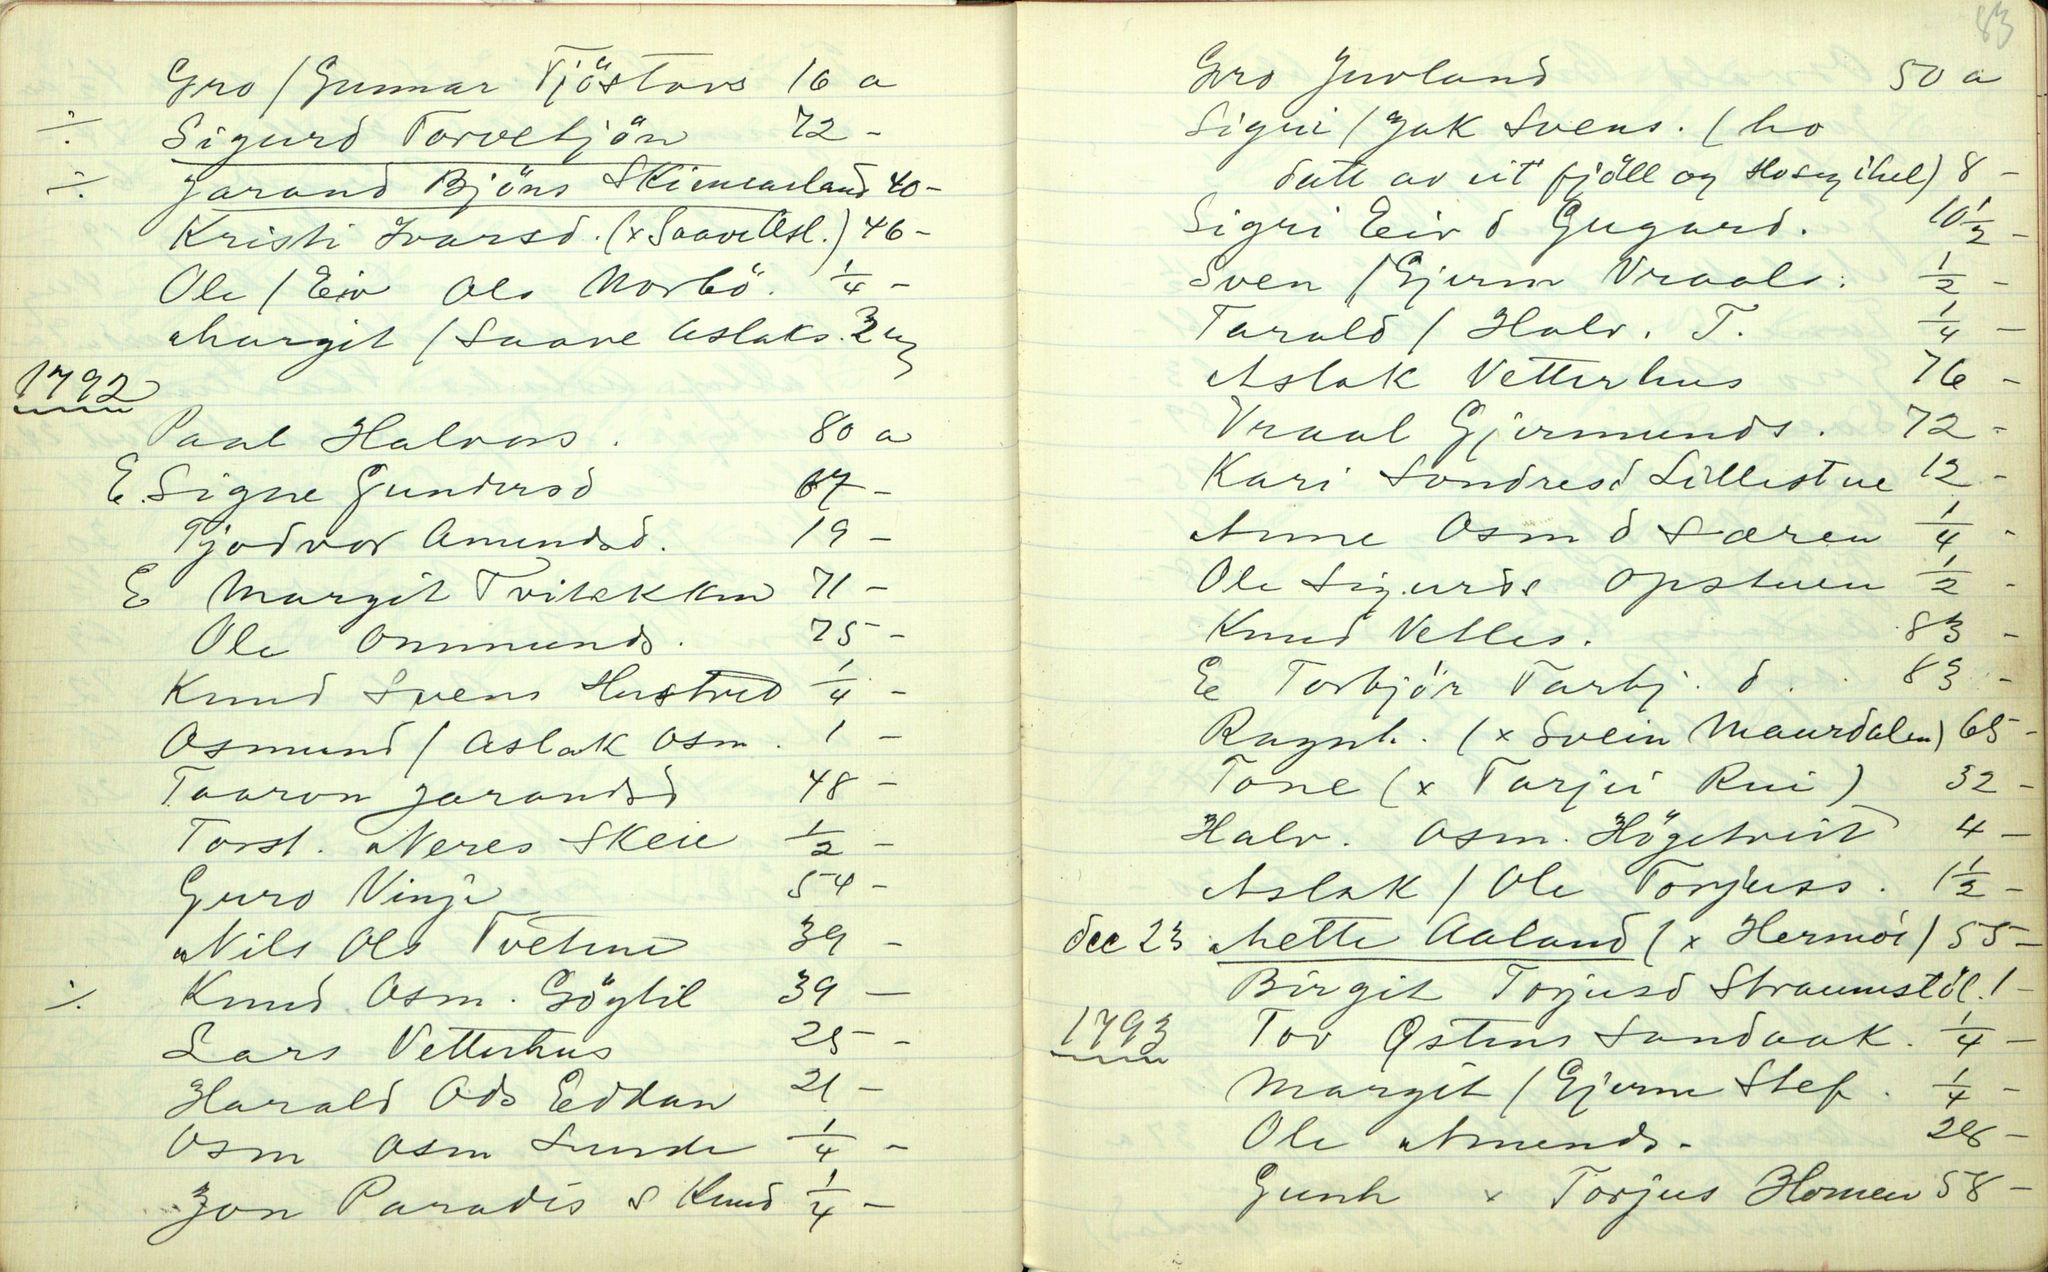 Gro / Gunnar Tjöstovs 16 a
÷ Sigurd Torvetjön 72 -
÷ Jarand Bjöns Skinnarland 40 -
Kristi Ivarsd. (x Saave Asl.) 46 -
Ole / Eiv Ols Norbö. 1/4 -
Margit / Saave Aslaks. 3
1792
Paal Halvors. 80 a
E. Signe Gundersd 67 -
Tjodvor Amundsd. 19 -
E Margit Tvitekken 71 -
Ole Ommunds. 75 -
Knud Svens Hustved 1/4 -
Osmund / Aslak Osm. 1 -
Taaron Jarandsd 48 -
Torst. Neres Skeie 1/2 -
Guro Vinje 54 -
Nils Ols Tveiten 39 -
÷ Knud Osm. Göytil 39 -
Lars Vetterhus 25 -
Harald Ods Eddan 21 -
Osm Osm Sunde 1/4 -
Jon Paradis s Knud 1/4 -
83
Gro Juvland 50 a
Sigri / Jak Svens. (ho
datt av eit fjöll og) 8 -
Sigri Eiv d Gugard. 10 1/2 -
Sven / Gjerm Vraals. 1/2 -
Tarald / Halv. T. 1/4 -
Aslak Vetterhus 76 -
Vraal Gjermunds. 72 -
Kari Sondresd Lillestue 12 -
Anne Osm d Særen 1/4 -
Ole Sigurds Opstuen 1/2 -
Knud Vetles. 83 -
E Torbjör Tarbj. d. . 83 -
Ragnh. (x Svein Maurdalen) 65 -
Tone (x Tarjei Rui) 32 -
Halv. Osm. Högetveit 4 -
Aslak / Ole Torjuss. 1 1/2 -
Dec 23 Mette Aaland (x Hermoi) 55 -
Birgit Torjusd Straumstöl. 1 -
1793 Tov Østens Sandaak. 1/4 -
Margit / Gjerm Stef. 1/4 -
Ole Amunds. 28 -
Gunh x Torjus Homen 58 -